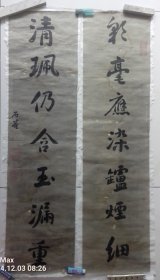 彩毫應染鑪煙細
清珮仍含玉漏重
Max
4,12.03 08:26